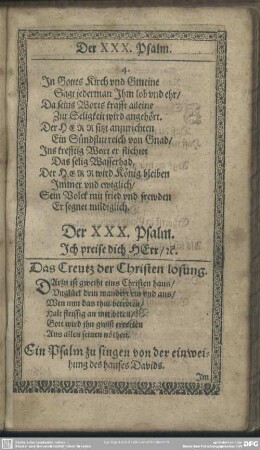 Der XXX. Psalm.
4.
In Gottes Kirch vnd Gmeine
Sagt jederman Jhm lob vnd ehr/
Da seins Worts krafft alleine
Zur Seligkeit wird angehört.
Der HERR sitzt anzurichten
Ein Sündflut reich von Gnad/
Ins krefftig Wort er flichtet
Das selig Wasserbad,
Der HERR wird König bleiben
Immer vnd ewiglich/
Sein Volck mit fried vnd frewden
Er segnet mildiglich.
Der XXX. Psalm.
Ich preise dich HErr/ ꝛc.
Das Creutz der Christen losung.
DArin ist gweiht eins Christen haus/
Vnglück drin wandert ein vnd aus/
Wen nun das thut betretten/
Halt fleissig an mit betten/
Gott wird jhn gwiß erretten
Aus allen seinen nöthen.
Ein Psalm zu singen von der einwei-
hung des hauses Davids.